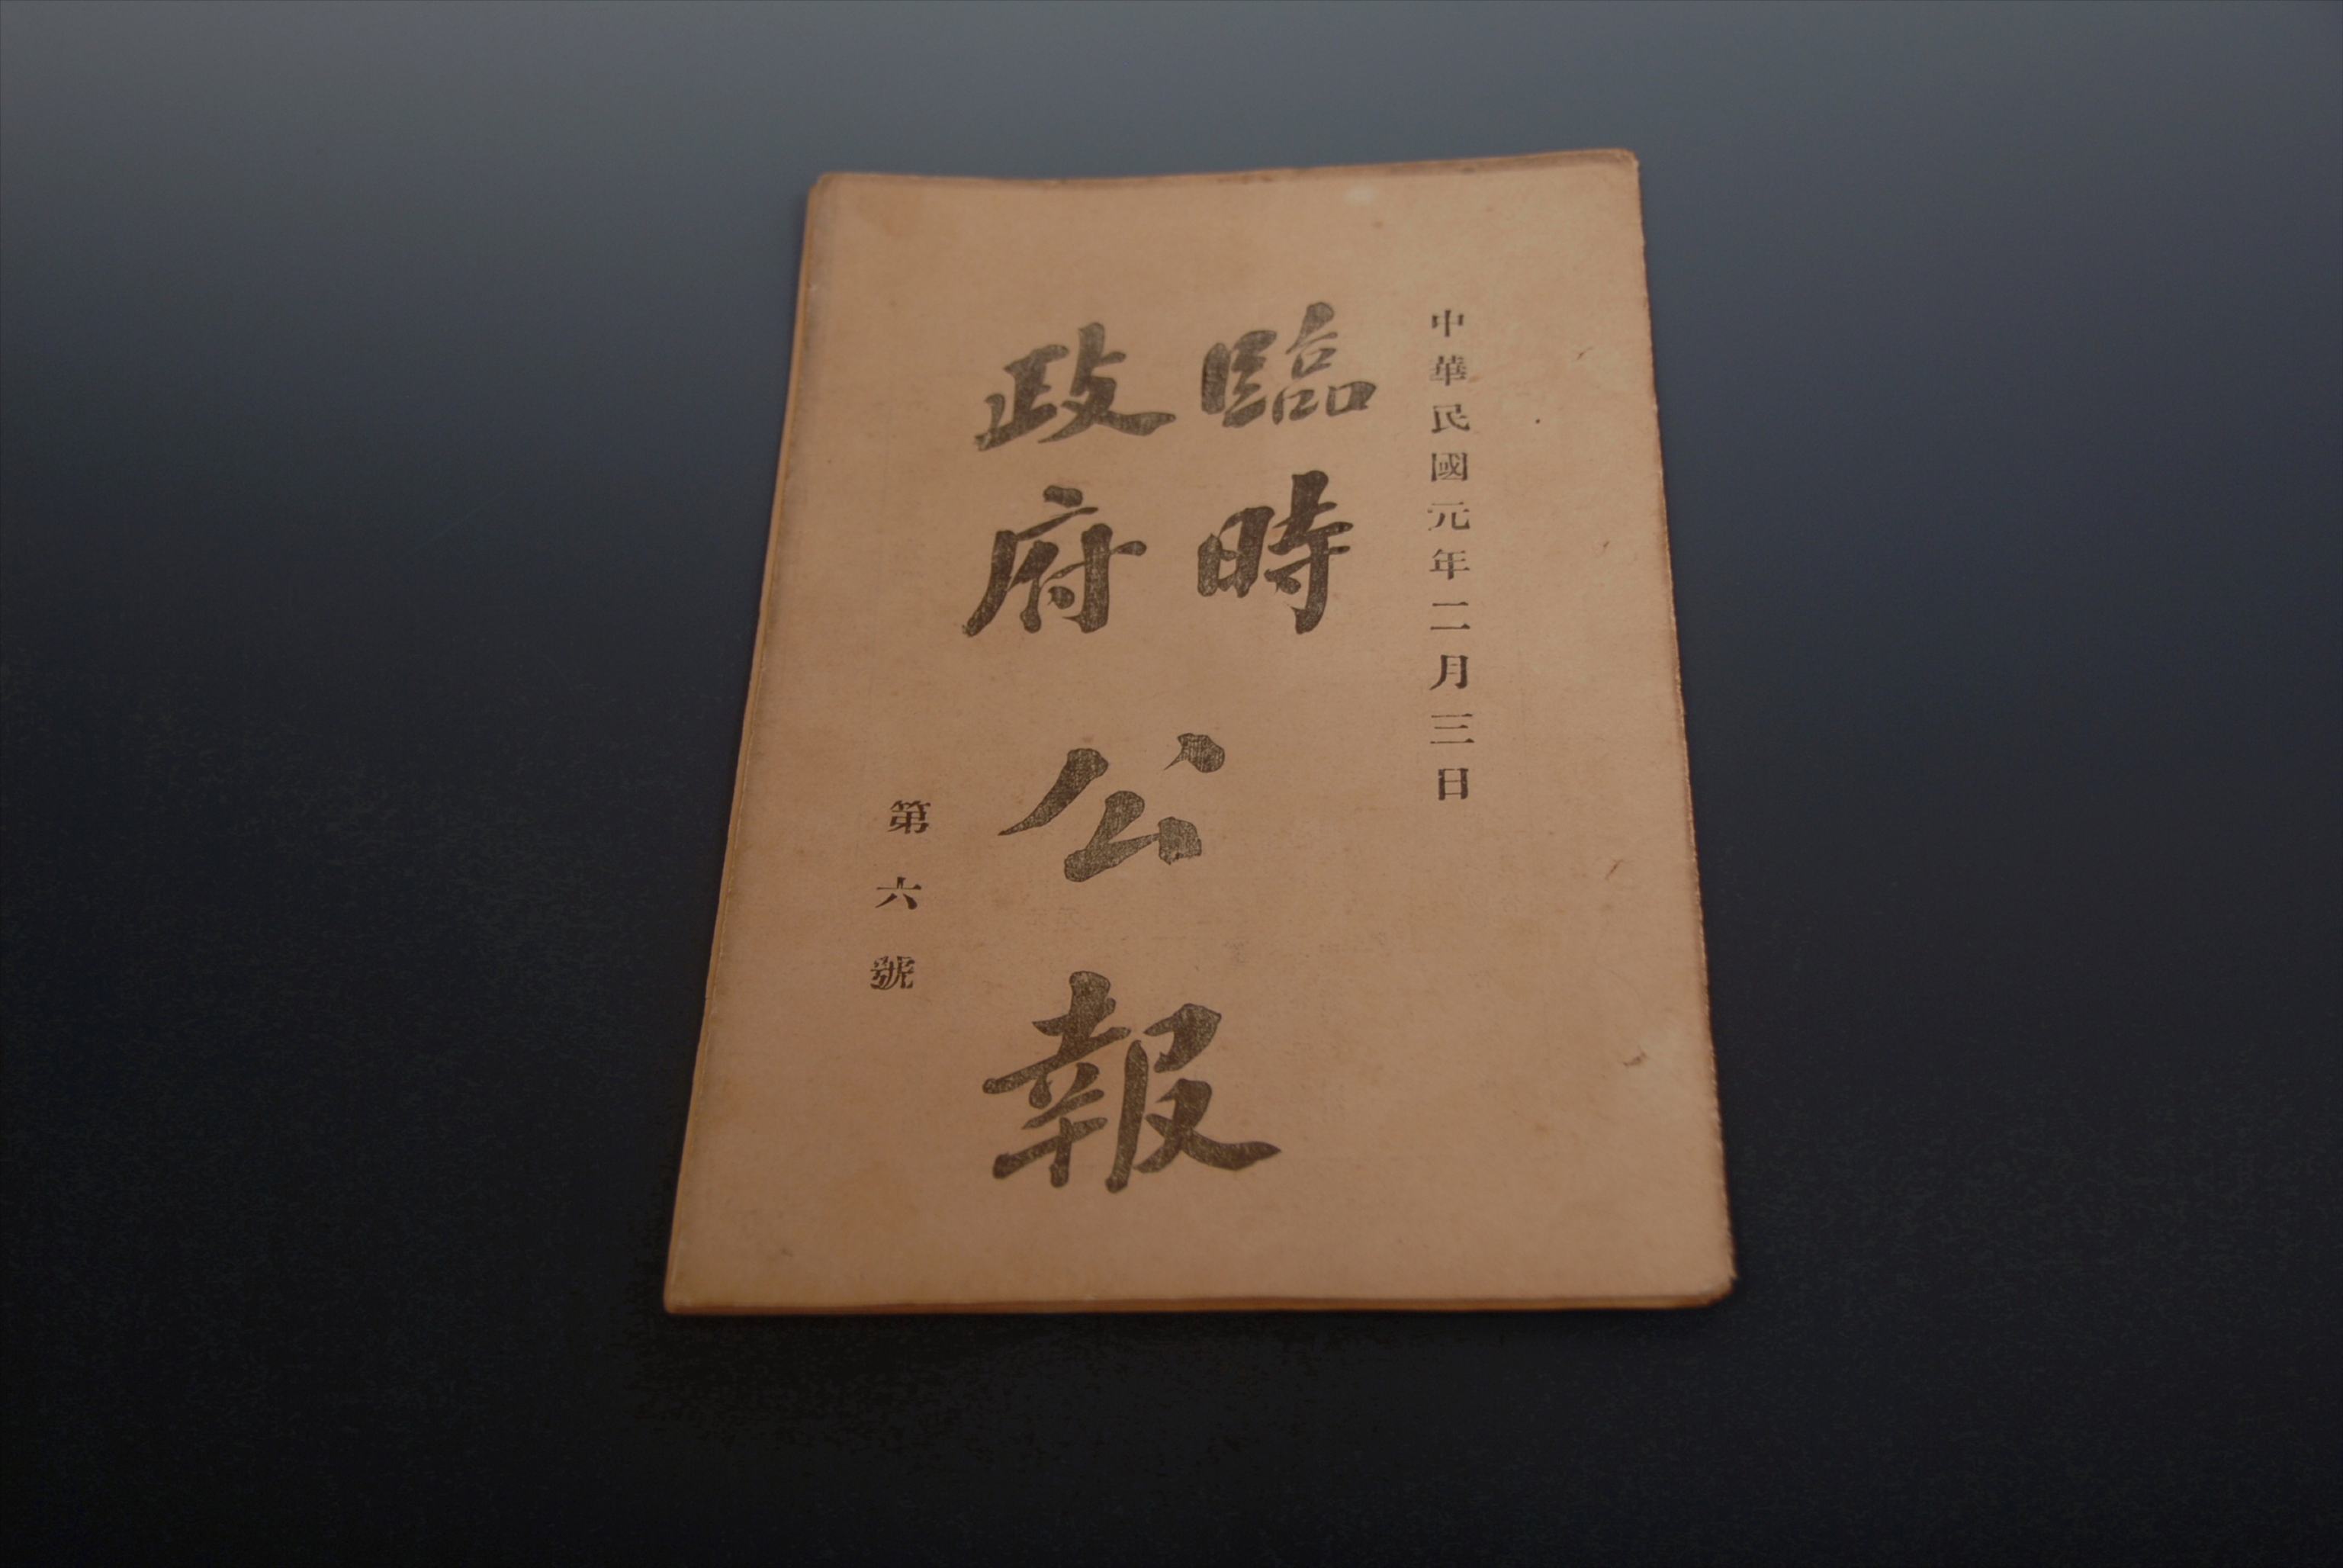 中華民國元年二月三日
臨時
政府
公報
第六號